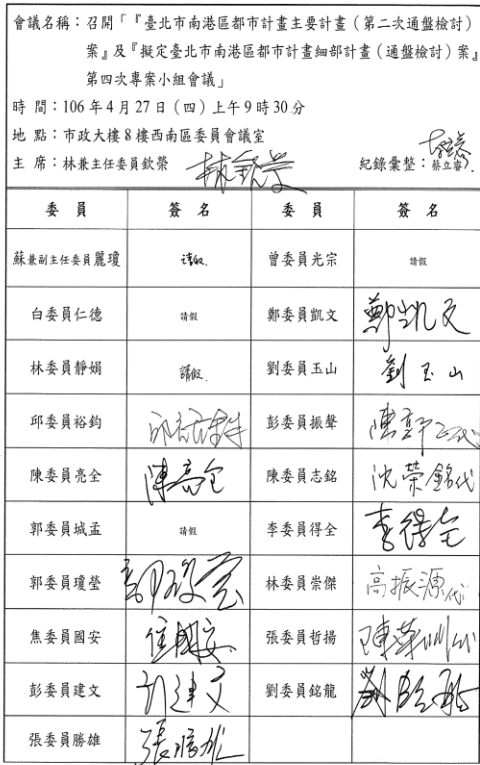 會議名稱：召開「『臺北市南港區都市計畫主要計畫（第二次通盤檢討）
案』及『擬定臺北市南港區都市計畫細部計畫（通盤檢討）案』
第四次專案小組會議」
時 間：106年4月27日（四）上午9時30分
地 點：市政大樓8樓西南區委員會議室
主 席：林兼主任委員欽榮 林欽榮 紀錄彙整：蔡立睿
委 員 簽 名 委 員 簽 名
蘇兼副主任委員麗瓊 請假. 曾委員光宗 請假
白委員仁德 請假 鄭委員凱文 鄭凱文
林委員靜娟 請假. 劉委員玉山 劉玉山
邱委員裕鈞 邱裕鈞 彭委員振聲
陳委員亮全 陳亮全 陳委員志銘 沈榮銘代
郭委員城孟 請假 李委員得全 李得全
郭委員瓊瑩 郭瓊瑩 林委員崇傑 高振源代
焦委員國安 焦國安 張委員哲揚
彭委員建文 彭建文 劉委員銘龍 劉銘龍
張委員勝雄 張勝雄